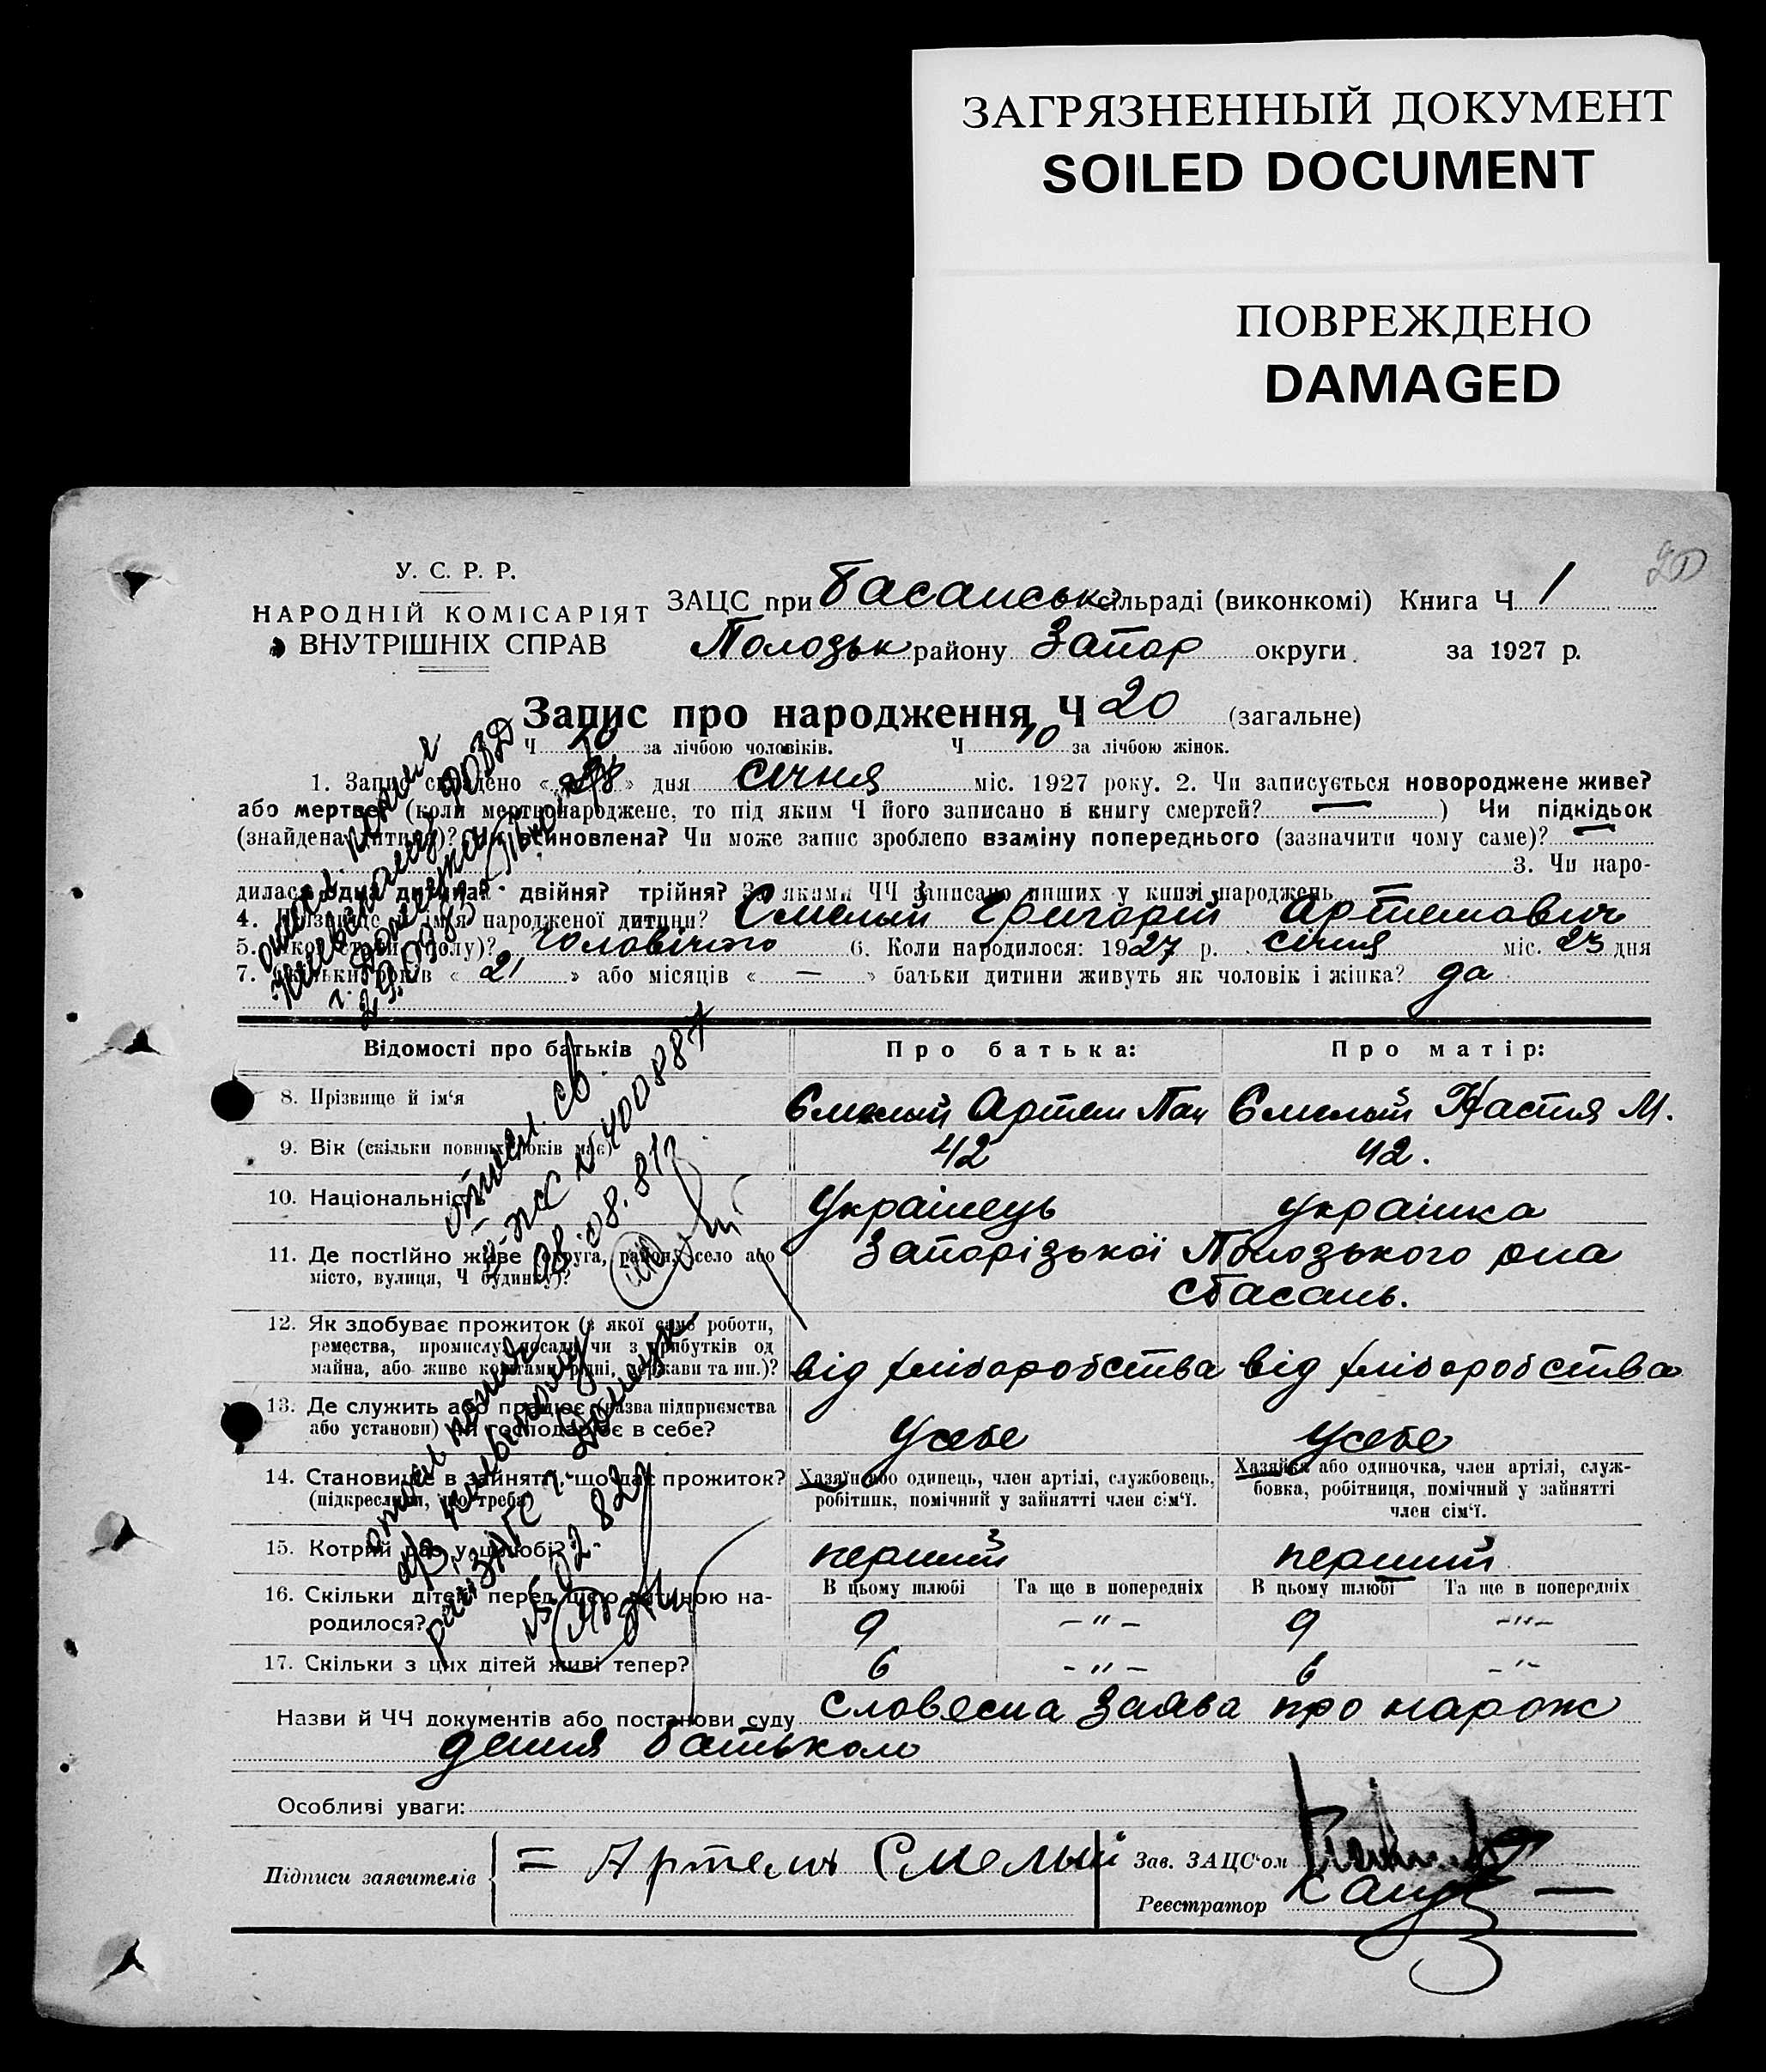 ЗАГРЯЗНЕННЫЙ ДОКУМЕНТ
SOILED DOCUMENT
ПОВРЕЖДЕНО
DAMAGED
20
У. С. Р. Р.
НАРОДНІЙ КОМІСАРІЯТ
ВНУТРІШНІХ СПРАВ
ЗАЦС при Басанській сільраді (виконкомі) Книга Ч 1
Пологзьк району Запор округи за 1927 р.
Запис про народження Ч 20 (загальне)
Ч 10 за лічбою чоловіків. Ч 10 за лічбою жінок.
1. Запис складено « 28 » дня січня міс. 1927 року. 2. Чи записується новороджене живе?
або мертве? (коли мертвонароджене, то під яким Ч його записано в книгу смертей? — ) Чи підкідьок
(знайдена дитина)? Чи всиновлена? Чи може запис зроблено взаміну попереднього (зазначити чому саме)? —
3. Чи наро-
дилася одна дитина? двійня? трійня? За якими ЧЧ записано инших у книзі народжень
4. Прізвище й імя народженої дитини? Смелый Григорій Артемович
5. Якої статі (полу)? чоловічого 6. Коли народилося: 1927 р. січня міс. 23 дня
7. Скільки років « 21 » або місяців « — » батьки дитини живуть як чоловік і жінка? да
Відомості про батьків
Про батька:
Про матір:
8. Прізвище й ім'я
Смелый Артем Пан
Смелый Настя М.
9. Вік (скільки повних років має)
42
42.
10. Національність
Українець
Українка
11. Де постійно живе (округа, район, село або
місто, вулиця, Ч будинку)?
Запорізької Пологзького рна
с Басань.
12. Як здобуває прожиток (з якої саме роботи,
ремества, промислу, посади чи з прибутків од
майна, або живе коштами рідні, держави та ин.)?
від хліборобства
від хліборобства
13. Де служить або працює (назва підприємства
або установи) чи господарює в себе?
Усебе
Усебе
14. Становище в зайнятті, що дає прожиток?
(підкреслити, що треба)
Хазяїн або одинець, член артілі, службовець,
робітник, помічний у зайнятті член сім'ї.
Хазяйка або одиночка, член артілі, служ-
бовка, робітниця, помічний у зайнятті
член сім'ї.
15. Котрий раз у шлюбі?
перший
перший
16. Скільки дітей перед цією дитиною на-
родилося?
В цьому шлюбі Та ще в попередніх В цьому шлюбі Та ще в попередніх
9 — " — 9 — " —
17. Скільки з цих дітей живі тепер?
6 — " — 6 — " —
Назви й ЧЧ документів або постанови суду словесна заява про нарож
дення батьком
Особливі уваги:
Підписи заявителів = Артемъ Смелый
Зав. ЗАЦС'ом
Реєстратор
г. Донецка
29.07.81
№ 400887
08.08.81
ЗАГС г. Донецка
15.02.82